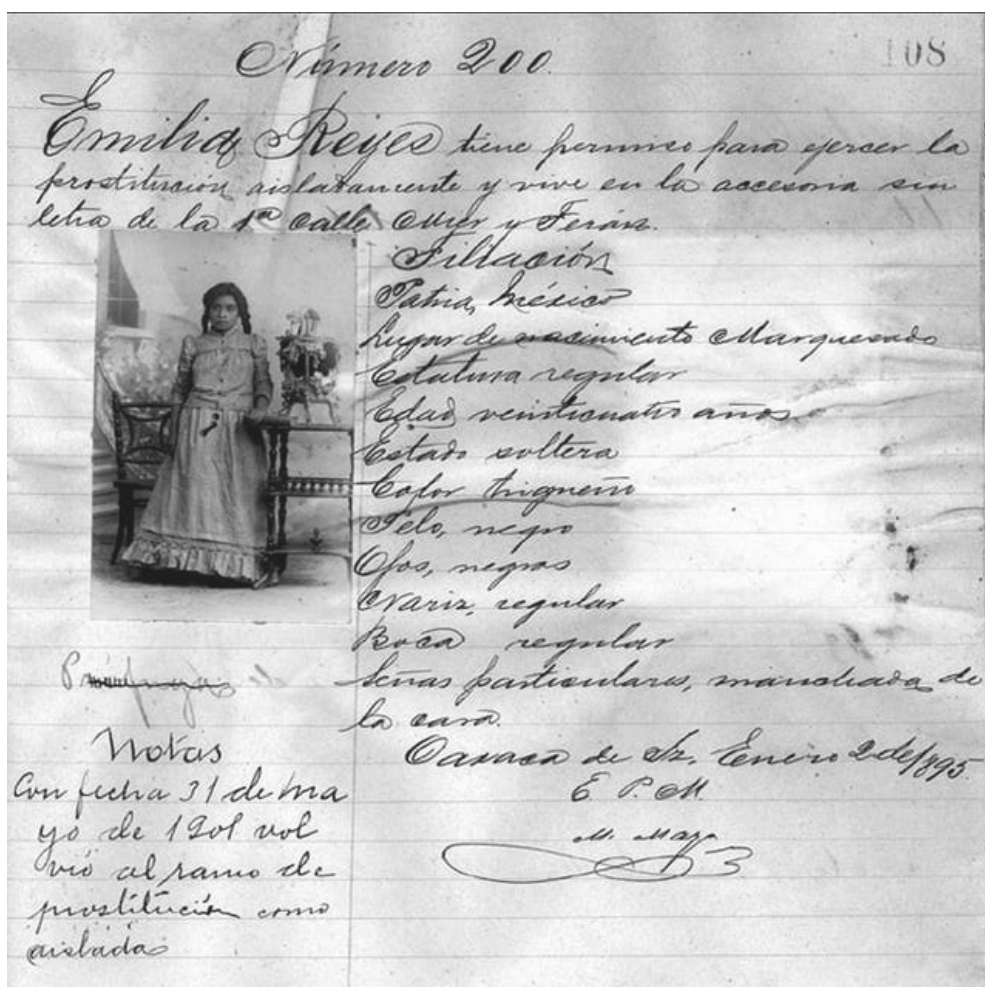 Número 200.
108
Emilia Reyes tiene permiso para ejercer la
prostitución aisladamente y vive en la accesoria sin
letra de la 1ª calle Mier y Terán.
Filiación
Patria, México
Lugar de nacimiento Marquesado
Estatura regular
Edad veinticuatro años
Estado soltera
Color trigueño
Pelo, negro
Ojos, negros
Nariz, regular
Boca regular
Señas particulares, manchada de
la cara.
Oaxaca de Jz. Enero 2 de 1895
E. P. M.
M. Maza
Prófuga
Notas
Con fecha 31 de ma
yo de 1901 vol
vió al ramo de
prostitución como
aislada